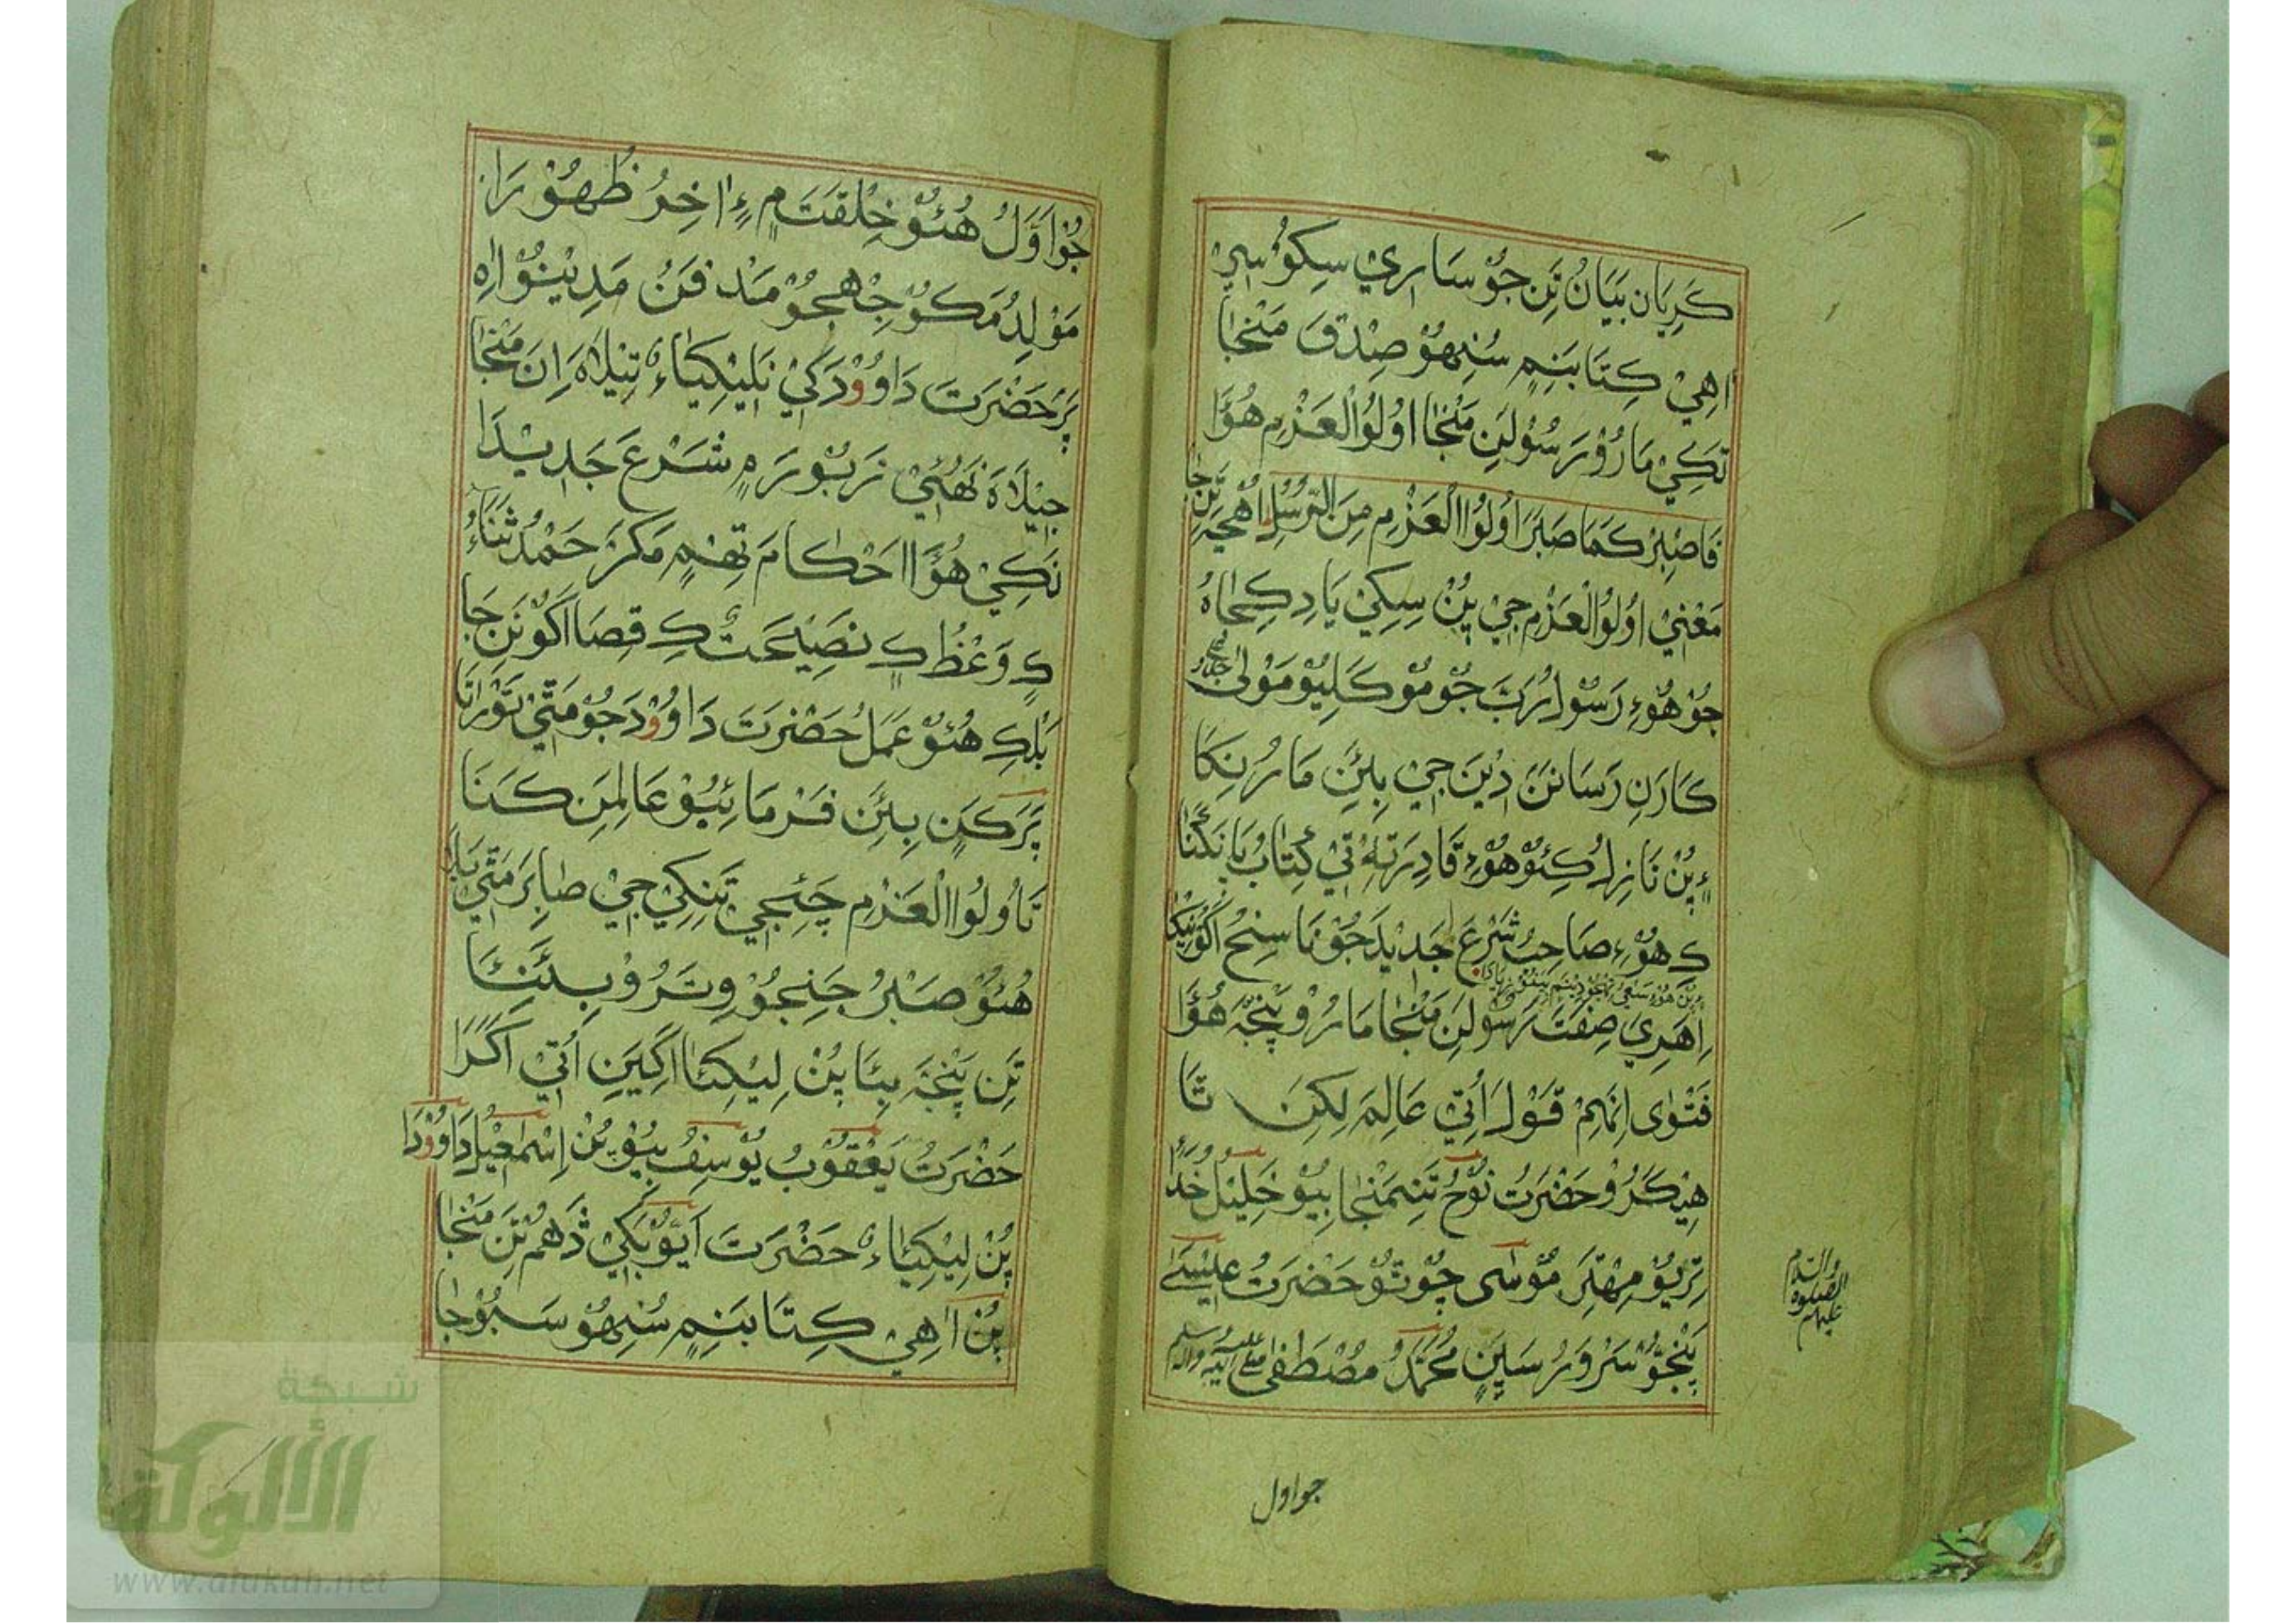 كَرِيَان بَيَانُ تَنِ جُوْ سَارِيْ سِكُوْ سِيْ
اَهِيْ كِتَابَنِمِ سُنِهُوْ صِدْقَ مَنْجَا
تَكِيْ مَارُوْ رَسُوْلَنِ مَنْجَا اُولُوا الْعَزْمِ هُؤَا
فَاصْبِرْ كَمَا صَبَرَ اُولُوا الْعَزْمِ مِنَ الرُّسُلِ
مَعْنِيْ اُولُوا الْعَزْمِ جِيْ پُنْ سِكِيْ يَادِ كِجَاهُ
جُوْ هُوْءِ رَسُوْلُ رَبَّ جُوْ مُوْكَلِيُوْ مَوْلٰى
كَارَنِ رَسَانَنَ دِيْنَ جِيْ بِئَنِ مَارُ نِكَا
ءِ پُنْ نَازِلُ كِئُوْ هُوْءِ قَادِرَ تِهْ تِيْ كِتَابُ
كِ هُوْءِ صَاحِبُ شَرْعَ جَدِيْدَ جُوْ نَاسِخُ
اِهَرِيَ صِفَتَ رَسُوْلَنِ مَنْجَا مَارُوْ پَنْجَہَ هُؤَا
فَتْوٰى اِنَهِمْ قَوْلَ اُتِيْ عَالِمَ لِكِنَ تَا
هِيْكَرُوْ حَضْرَتُ نُوْحُ تَنِمَنْجَا بِيُوْ خَلِيْلُ خُدَا
تِرِيُوْ مِهْتَرَ مُوْسٰى چُوْتُوْ حَضْرَتُ عِيْسٰى
پَنْجُوْ سَرْوَرُ سَيِّنِ مُحَمَّدُ مُصْطَفٰى
عليهم الصلوة والسلام
جو اول
جُوْ اَوَّلُ هُئُوْ خِلْقَتَ مِ ءِ اٰخِرُ ظُهُوْرَا
مَوْلِدُ مَكُوْ جِهْجُوْ مَدْفَنُ مَدِيْنُوْ اٰهِ
پَرَ حَضْرَتَ دَاوُوْدَ كِيْ نَلِيْكِيَاءُ تِيْلَاهَ اِنَ مَنْجَا
جِيْلَاهَ نَهُئِيْ زَبُوْرَ مِ شَرْعَ جَدِيْدَا
نَكِيْ هُؤَا اَحْكَامَ تِهِمِ مَكَرَ حَمْدُ ثَنَاءُ
كِ وَعْظُ كِ نَصِيْحَتُ كِ قِصَا اَكُوْنَنِ جَا
بَلْكِ هُئُوْ عَمَلُ حَضْرَتَ دَاوُوْدَ جُوْ مَتِيْ تَوْرَاتَا
پَرَ كَنِ بِئَنِ فَرْمَائِيُوْ عَالِمَنِ كَنَا
تَا اُولُوا الْعَزْمِ چَئِجِيْ تَنِكِيْ جِيْ صَابِرَ مَتِيْ بَلَا
هُئُوْ صَبْرُ جَنِجُوْ وِتَرُوْ بِئَنِئَا
تَنِ پَنْجَہَ بِئَا پُنْ لِيْكِئَا اَكِيَنِ اُتِيْ اَكَرَا
حَضْرَتُ يَعْقُوْبُ يُوْسِفُ بِيُوْ پُنْ اِسْمٰعِيْلُ دَاوُوْدَا
پُنْ لِيْكِيَاءُ حَضْرَتَ اَيُّوْبَ كِيْ ذَهُمْ تَنِ مَنْجَا
پُنْ اٰهِيْ كِتَابَنِمِ سُنِهُوْ سَبُوْجَا
شبكة
الألوكة
www.alukah.net